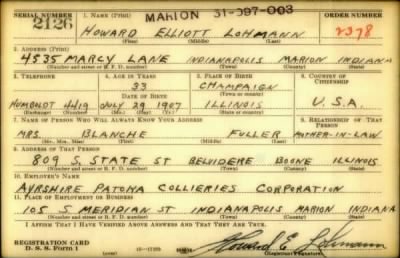 SERIAL NUMBER 1. NAME (Print) MARION 31-097-003 ORDER NUMBER
2126 HOWARD ELLIOTT LOHMANN 2378
(First) (Middle) (Last)
2. ADDRESS (Print)
4535 MARCY LANE INDIANAPOLIS MARION INDIANA
(Number and street or R. F. D. number) (Town) (County) (State)
3. TELEPHONE 4. AGE IN YEARS 5. PLACE OF BIRTH 6. COUNTRY OF CITIZENSHIP
33 CHAMPAIGN
DATE OF BIRTH (Town or county)
HUMBOLDT 4419 JULY 29 1907 ILLINOIS U.S.A.
(Exchange) (Number) (Mo.) (Day) (Yr.) (State or country)
7. NAME OF PERSON WHO WILL ALWAYS KNOW YOUR ADDRESS 8. RELATIONSHIP OF THAT PERSON
MRS. BLANCHE FULLER MOTHER-IN-LAW
(Mr., Mrs., Miss) (First) (Middle) (Last)
9. ADDRESS OF THAT PERSON
809 S. STATE ST BELVIDERE BOONE ILLINOIS
(Number and street or R. F. D. number) (Town) (County) (State)
10. EMPLOYER'S NAME
AYRSHIRE PATOKA COLLIERIES CORPORATION
11. PLACE OF EMPLOYMENT OR BUSINESS
105 S MERIDIAN ST INDIANAPOLIS MARION INDIANA
(Number and street or R. F. D. number) (Town) (County) (State)
I AFFIRM THAT I HAVE VERIFIED ABOVE ANSWERS AND THAT THEY ARE TRUE.
REGISTRATION CARD
D. S. S. Form 1 Howard E. Lohmann
(Registrant's signature)